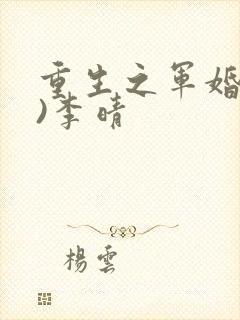 重生之軍婚
)李晴
楊雲